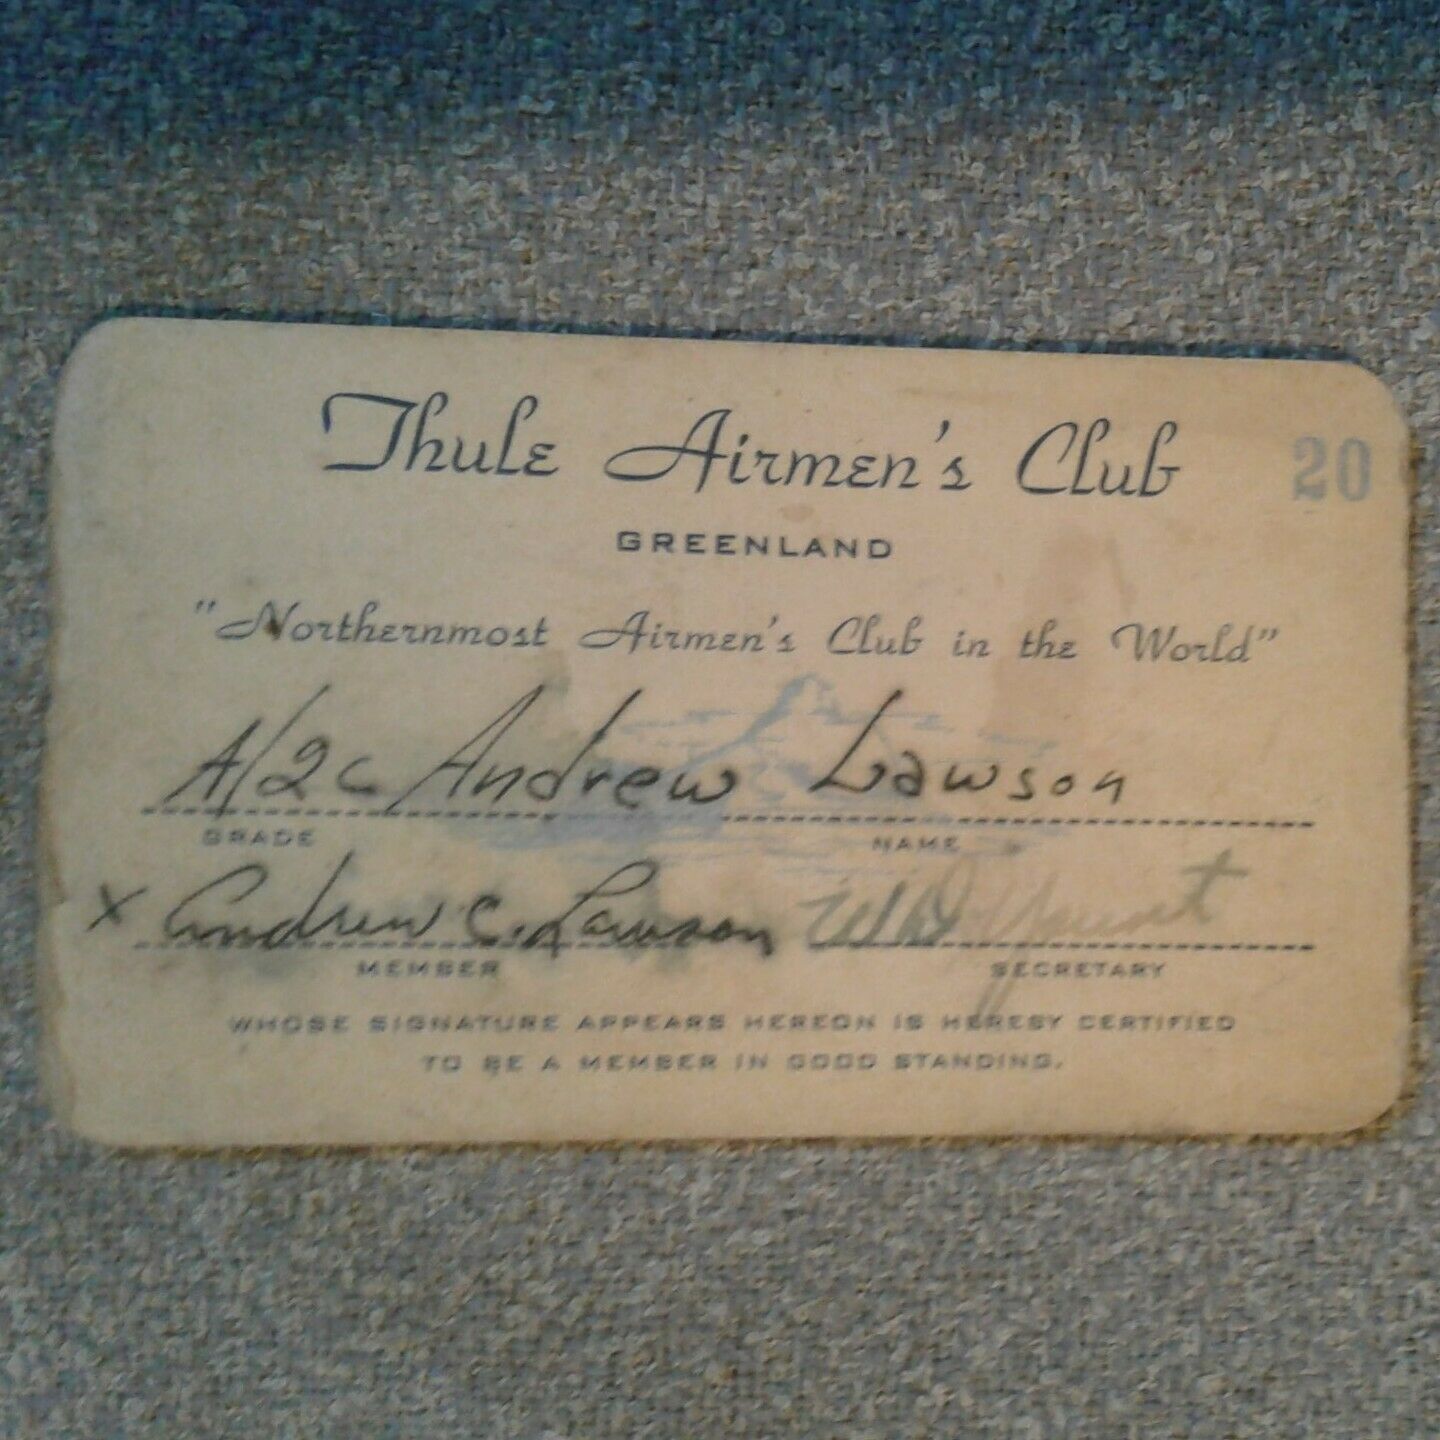 Thule Airmen's Club 20
GREENLAND
"Northernmost Airmen's Club in the World"
A/2C Andrew Lawson
GRADE NAME
x Andrew C. Lawson
MEMBER SECRETARY
WHOSE SIGNATURE APPEARS HEREON IS HEREBY CERTIFIED
TO BE A MEMBER IN GOOD STANDING.